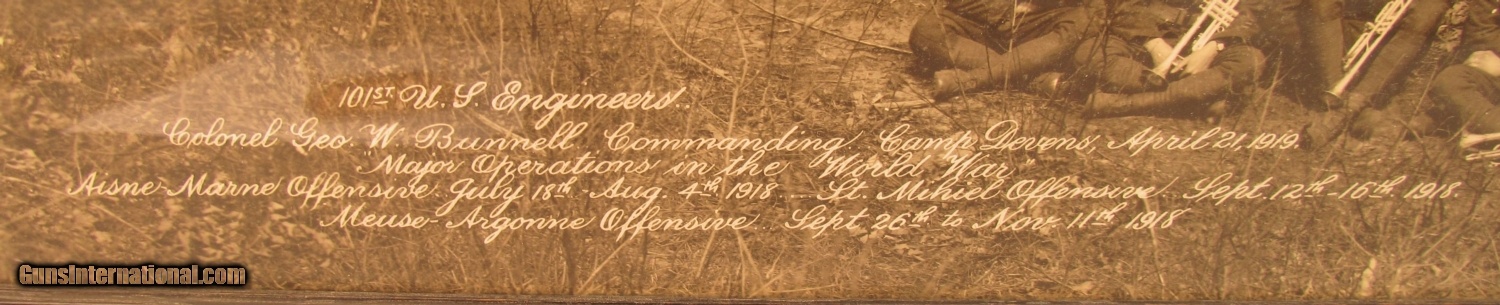 101ST. U.S. Engineers.
Colonel Geo. W. Bunnell. Commanding. Camp Devens, April 21, 1919.
"Major Operations in the World War"
Aisne-Marne Offensive. July 18th - Aug. 4th. 1918. — St. Mihiel Offensive. Sept. 12th - 16th. 1918.
Meuse-Argonne Offensive. Sept. 26th. to Nov. 11th. 1918
GunsInternational.com